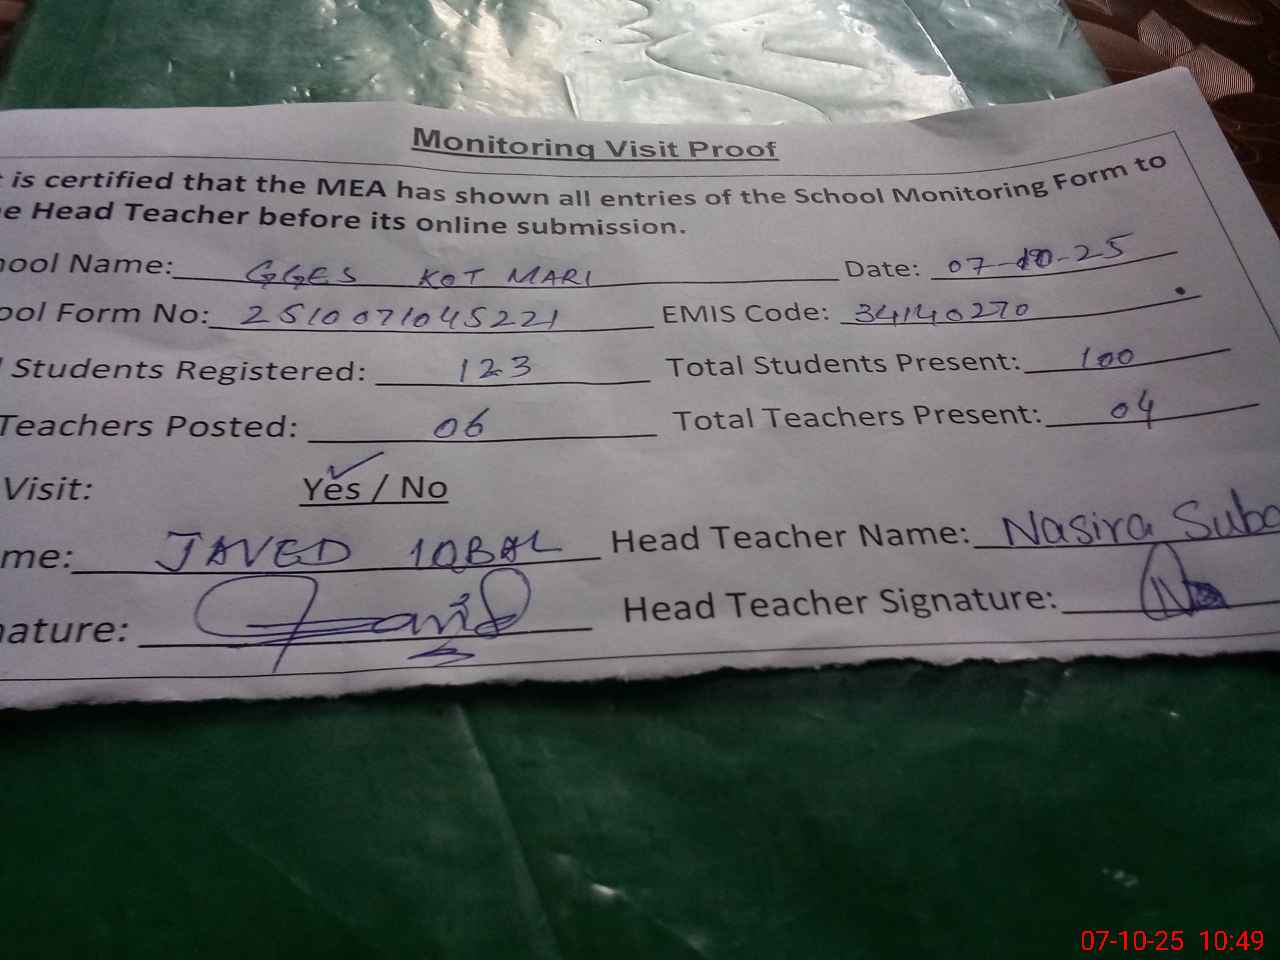 Monitoring Visit Proof
is certified that the MEA has shown all entries of the School Monitoring Form to
e Head Teacher before its online submission.
ool Name: GGES KOT MARI Date: 07-10-25
ool Form No: 2510071045221 EMIS Code: 34140270
Students Registered: 123 Total Students Present: 100
Teachers Posted: 06 Total Teachers Present: 04
Visit: Yes / No
me: JAVED IQBAL Head Teacher Name: Nasira Suba
nature: Head Teacher Signature:
07-10-25 10:49